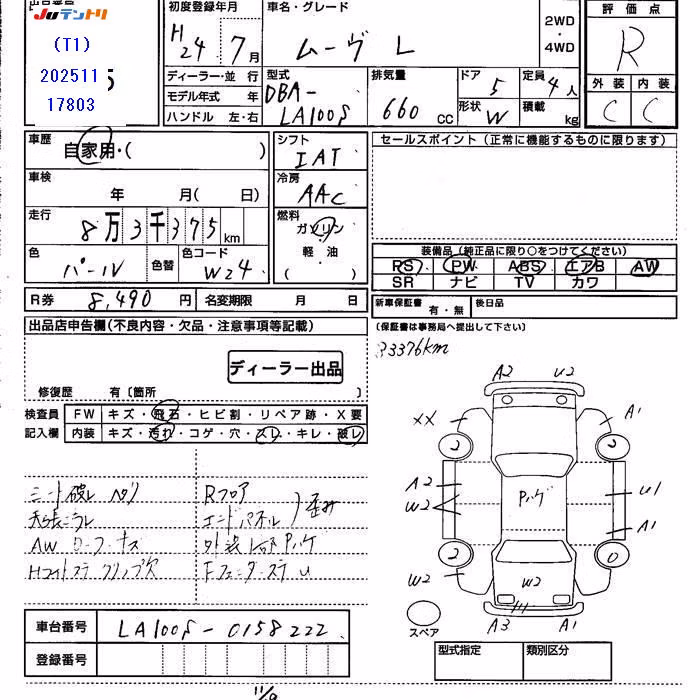 出品番号
JUテントリ
(T1)
202511 5
17803
初度登録年月
H24 7月
車名・グレード
ムーヴ L
2WD・4WD
評価点
R
外装 内装
C C
ディーラー・並 行
モデル年式 年
ハンドル 左・右
型式
DBA-LA100S
排気量
660 cc
ドア 5
形状 W
定員 4人
積載 kg
車歴
自家用・( )
車検
年 月( 日)
走行
8万3千375km
色
パール
色替
色コード
W24
シフト
IAT
冷房
AAC
燃料
ガソリン
軽・油
( )
セールスポイント(正常に機能するものに限ります)
装備品(純正品に限り○をつけてください)
RS PW ABS エアB AW
SR ナビ TV カワ
R券 8,490 円 名変期限 月 日
新車保証書 有・無 後日品
(保証書は事務局へ提出して下さい)
出品店申告欄(不良内容・欠品・注意事項等記載)
ディーラー出品
修復歴 有〔箇所 〕
検査員 FW キズ・飛石・ヒビ割・リペア跡・X要
記入欄 内装 キズ・汚れ・コゲ・穴・スレ・キレ・破レ
83376km
A2 U2
XX A1
2 2
A2 W2 Pハゲ U1
A1
2 0
W2 W2
スペア A3 A1
シート破レ ヘタリ Rフロア
エンドパネル 歪み
AW
Fフェンダーステ U
車台番号 LA100S-0158222
登録番号
型式指定 類別区分
11/9